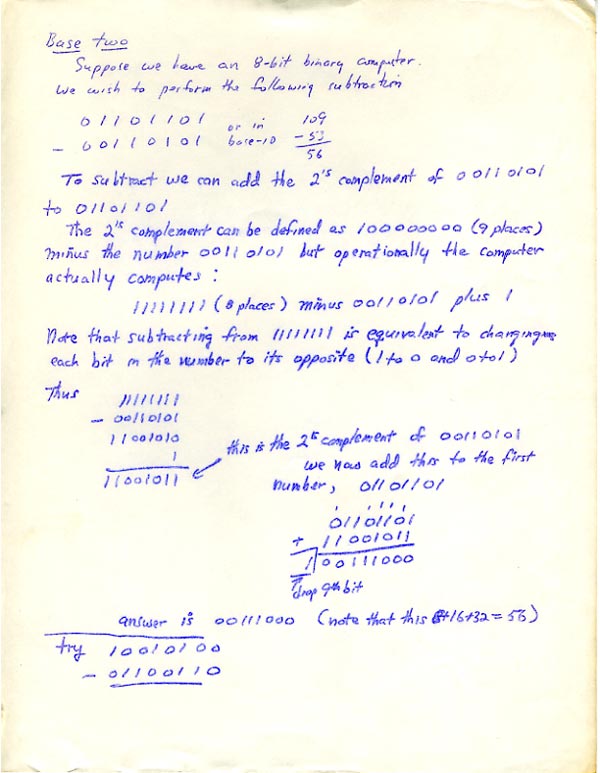 Base two
Suppose we have an 8-bit binary computer.
We wish to perform the following subtraction
01101101 or in 109
- 00110101 base-10 - 53
56
To subtract we can add the 2's complement of 00110101
to 01101101
The 2's complement can be defined as 100000000 (9 places)
minus the number 00110101 but operationally the computer
actually computes:
11111111 (8 places) minus 00110101 plus 1
Note that subtracting from 11111111 is equivalent to changing
each bit in the number to its opposite (1 to 0 and 0 to 1)
Thus 11111111
- 00110101
11001010
1
11001011
this is the 2's complement of 00110101
we now add this to the first
number, 01101101
01101101
+ 11001011
1 00111000
drop 9th bit
answer is 00111000 (note that this 8+16+32=56)
try 10010100
- 01100110